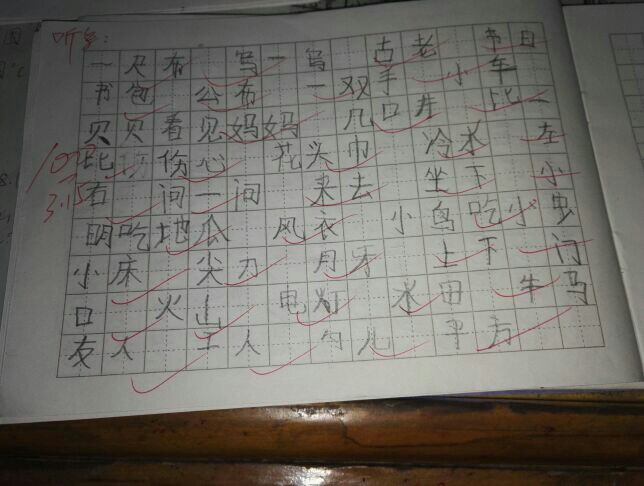 听写:
一尺布 写一写 古老 节日
书包 公布 一双手 小车
贝贝看见妈妈 几口井 比一
比 伤心 花头巾 冷水 左
右 问一问 来去 坐下 小
明吃地瓜 风衣 小鸟吃小虫
小床 尖刀 月牙 上下 门
口 火山 电灯 水田 牛马
友人 工人 儿 平方
100
3.15